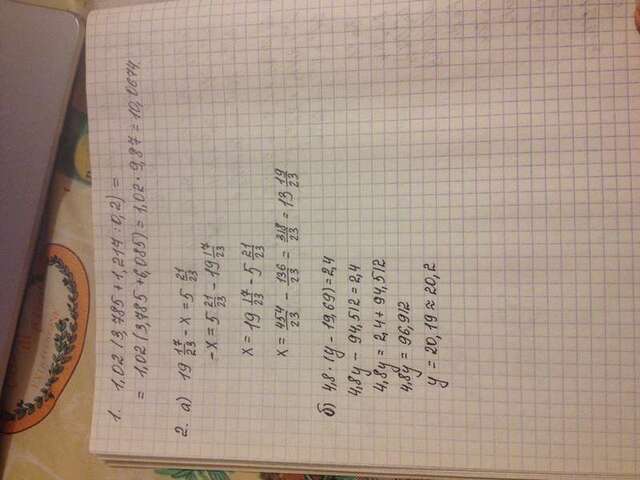 1. 1,02(3,785 + 1,217 : 0,2) =
= 1,02(3,785 + 6,085) = 1,02 · 9,87 = 10,0674.
2. а) 19 17/23 - х = 5 21/23
-х = 5 21/23 - 19 17/23
х = 19 17/23 - 5 21/23
х = 454/23 - 136/23 = 318/23 = 13 19/23
б) 4,8 · (у - 19,69) = 2,4
4,8у - 94,512 = 2,4
4,8у = 2,4 + 94,512
4,8у = 96,912
у = 20,19 ≈ 20,2